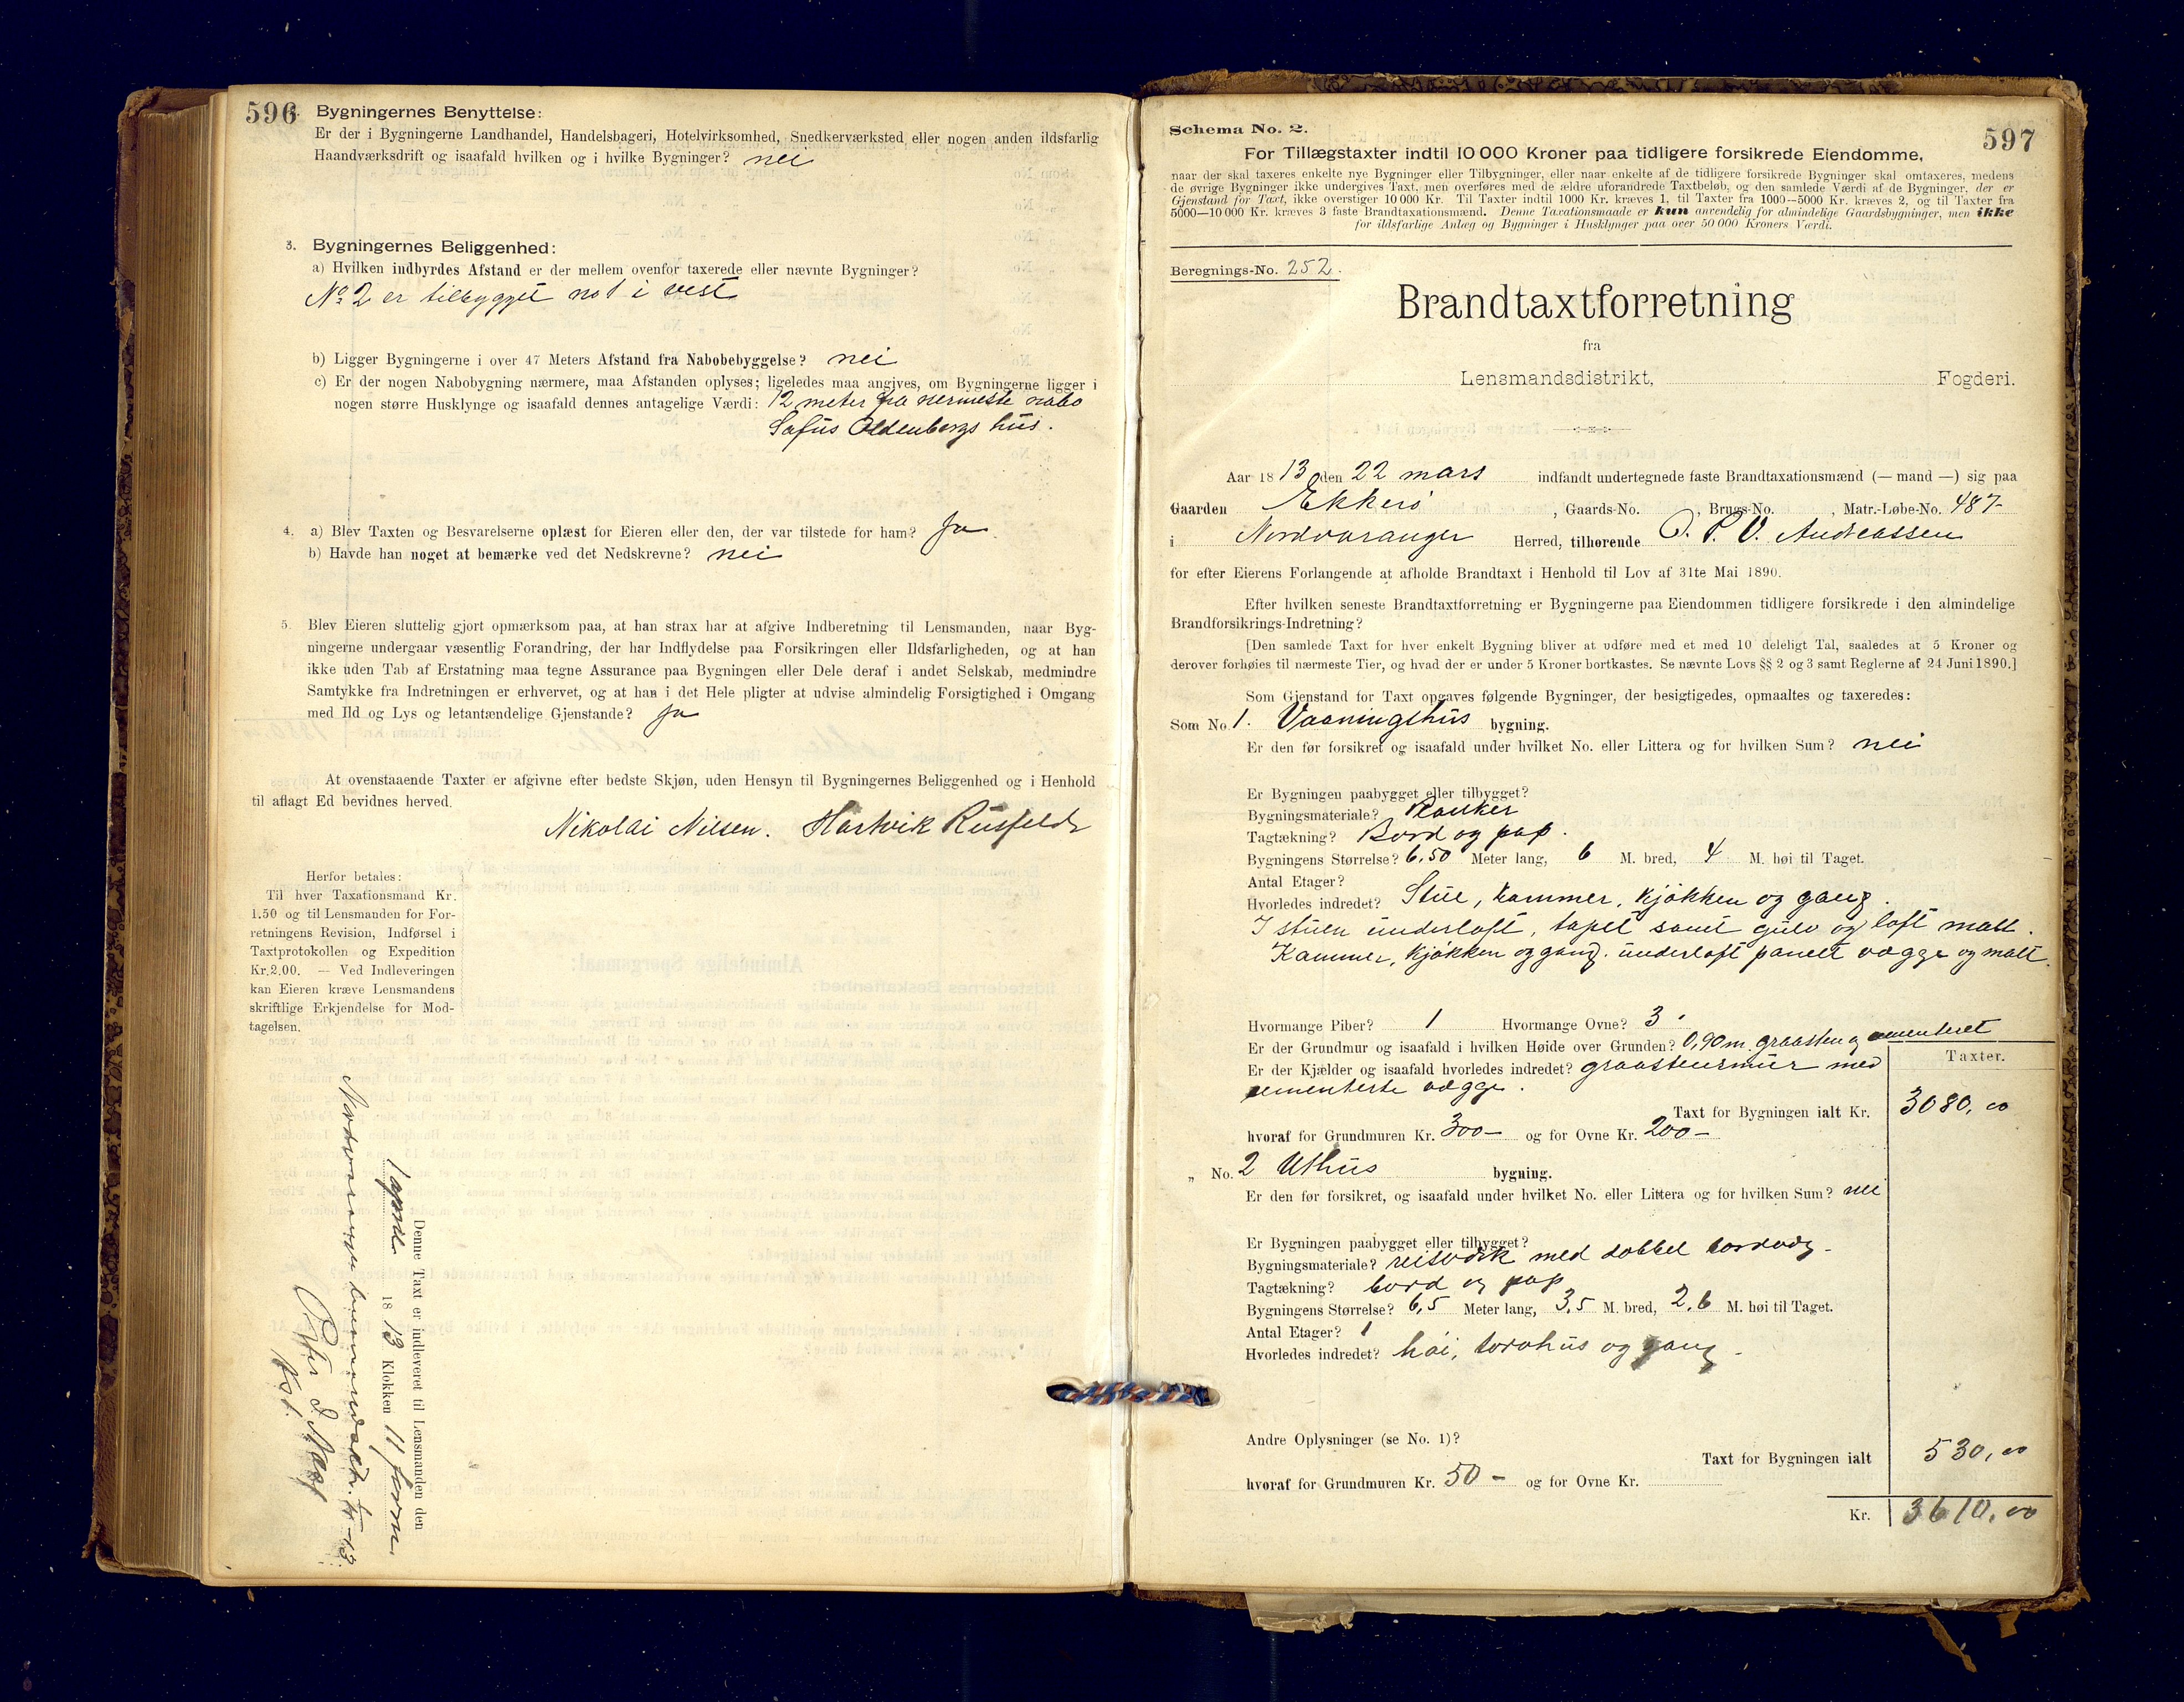 596
Bygningernes Benyttelse:
Er der i Bygningerne Landhandel, Handelsbageri, Hotelvirksomhed, Snedkerværksted eller nogen anden ildsfarlig
Haandværksdrift og isaafald hvilken og i hvilke Bygninger? nei
3. Bygningernes Beliggenhed:
a) Hvilken indbyrdes Afstand er der mellem ovenfor taxerede eller nævnte Bygninger?
No 2 er tilbygget no 1 i vest
b) Ligger Bygningerne i over 47 Meters Afstand fra Nabobebyggelse? nei
c) Er der nogen Nabobygning nærmere, maa Afstanden oplyses; ligeledes maa angives, om Bygningerne ligger i
nogen større Husklynge og isaafald dennes antagelige Værdi: 12 meter fra nermeste nabo
Sofus Oldenborgs hus.
4. a) Blev Taxten og Besvarelserne oplæst for Eieren eller den, der var tilstede for ham? Ja
b) Havde han noget at bemærke ved det Nedskrevne? nei
5. Blev Eieren sluttelig gjort opmærksom paa, at han strax har at afgive Indberetning til Lensmanden, naar Byg-
ningerne undergaar væsentlig Forandring, der har Indflydelse paa Forsikringen eller Ildsfarligheden, og at han
ikke uden Tab af Erstatning maa tegne Assurance paa Bygningen eller Dele deraf i andet Selskab, medmindre
Samtykke fra Indretningen er erhvervet, og at han i det Hele pligter at udvise almindelig Forsigtighed i Omgang
med Ild og Lys og letantændelige Gjenstande? Ja
At ovenstaaende Taxter er afgivne efter bedste Skjøn, uden Hensyn til Bygningernes Beliggenhed og i Henhold
til aflagt Ed bevidnes herved.
Nikolai Nilsen. Hartvik Rusfeldt
Herfor betales:
Til hver Taxationsmand Kr.
1.50 og til Lensmanden for For-
retningens Revision, Indførsel i
Taxtprotokollen og Expedition
Kr.2.00. — Ved Indleveringen
kan Eieren kræve Lensmandens
skriftlige Erkjendelse for Mod-
tagelsen.
Denne Taxt er indleveret til Lensmanden den
1 april 1813 Klokken 11 form.
Nordvaranger 1/4-13.
597
Schema No. 2.
For Tillægstaxter indtil 10 000 Kroner paa tidligere forsikrede Eiendomme,
naar der skal taxeres enkelte nye Bygninger eller Tilbygninger, eller naar enkelte af de tidligere forsikrede Bygninger skal omtaxeres, medens
de øvrige Bygninger ikke undergives Taxt, men overføres med de ældre uforandrede Taxtbeløb, og den samlede Værdi af de Bygninger, der er
Gjenstand for Taxt, ikke overstiger 10 000 Kr. Til Taxter indtil 1000 Kr. kræves 1, til Taxter fra 1000—5000 Kr. kræves 2, og til Taxter fra
5000—10 000 Kr. kræves 3 faste Brandtaxationsmænd. Denne Taxationsmaade er kun anvendelig for almindelige Gaardsbygninger, men ikke
for ildsfarlige Anlæg og Bygninger i Husklynger paa over 50 000 Kroners Værdi.
Beregnings-No. 252.
Brandtaxtforretning
fra
Lensmandsdistrikt, Fogderi.
Aar 1813 den 22 mars indfandt undertegnede faste Brandtaxationsmænd (— mand —) sig paa
Gaarden Ekkerö, Gaards-No. , Brugs-No. , Matr.-Løbe-No. 487-
i Nordvaranger Herred, tilhørende O. P. V. Andreassen
for efter Eierens Forlangende at afholde Brandtaxt i Henhold til Lov af 31te Mai 1890.
Efter hvilken seneste Brandtaxtforretning er Bygningerne paa Eiendommen tidligere forsikrede i den almindelige
Brandforsikrings-Indretning?
[Den samlede Taxt for hver enkelt Bygning bliver at udføre med et med 10 deleligt Tal, saaledes at 5 Kroner og
derover forhøies til nærmeste Tier, og hvad der er under 5 Kroner bortkastes. Se nævnte Lovs §§ 2 og 3 samt Reglerne af 24 Juni 1890.]
Som Gjenstand for Taxt opgaves følgende Bygninger, der besigtigedes, opmaaltes og taxeredes:
Som No. 1. Vaaningshus bygning.
Er den før forsikret og isaafald under hvilket No. eller Littera og for hvilken Sum? nei
Er Bygningen paabygget eller tilbygget?
Bygningsmateriale? Planker
Tagtækning? Bord og pap.
Bygningens Størrelse? 6,50 Meter lang, 6 M. bred, 4 M. høi til Taget.
Antal Etager?
Hvorledes indredet? Stue, kammer, kjökken og gang.
I stuen underloft, tapet samt gulv og loft malt.
Kammer, kjökken og gang. underloft panelt vægge og malt.
Hvormange Piber? 1 Hvormange Ovne? 3.
Er der Grundmur og isaafald i hvilken Høide over Grunden? 0,90 m. graasten og sementeret
Er der Kjælder og isaafald hvorledes indredet? graastensmur med
sementerte vægge.
Taxter.
Taxt for Bygningen ialt Kr. 3080,00
hvoraf for Grundmuren Kr. 300- og for Ovne Kr. 200-
„ No. 2 Uthus bygning.
Er den før forsikret, og isaafald under hvilket No. eller Littera og for hvilken Sum? nei
Er Bygningen paabygget eller tilbygget?
Bygningsmateriale? reisværk med dobbel bordvæg-
Tagtækning? bord og pap
Bygningens Størrelse? 6,5 Meter lang, 3,5 M. bred, 2,6 M. høi til Taget.
Antal Etager? 1
Hvorledes indredet? höi, torvhus og gang-
Andre Oplysninger (se No. 1)?
Taxt for Bygningen ialt 530,00
hvoraf for Grundmuren Kr. 50- og for Ovne Kr.
Kr. 3610,00